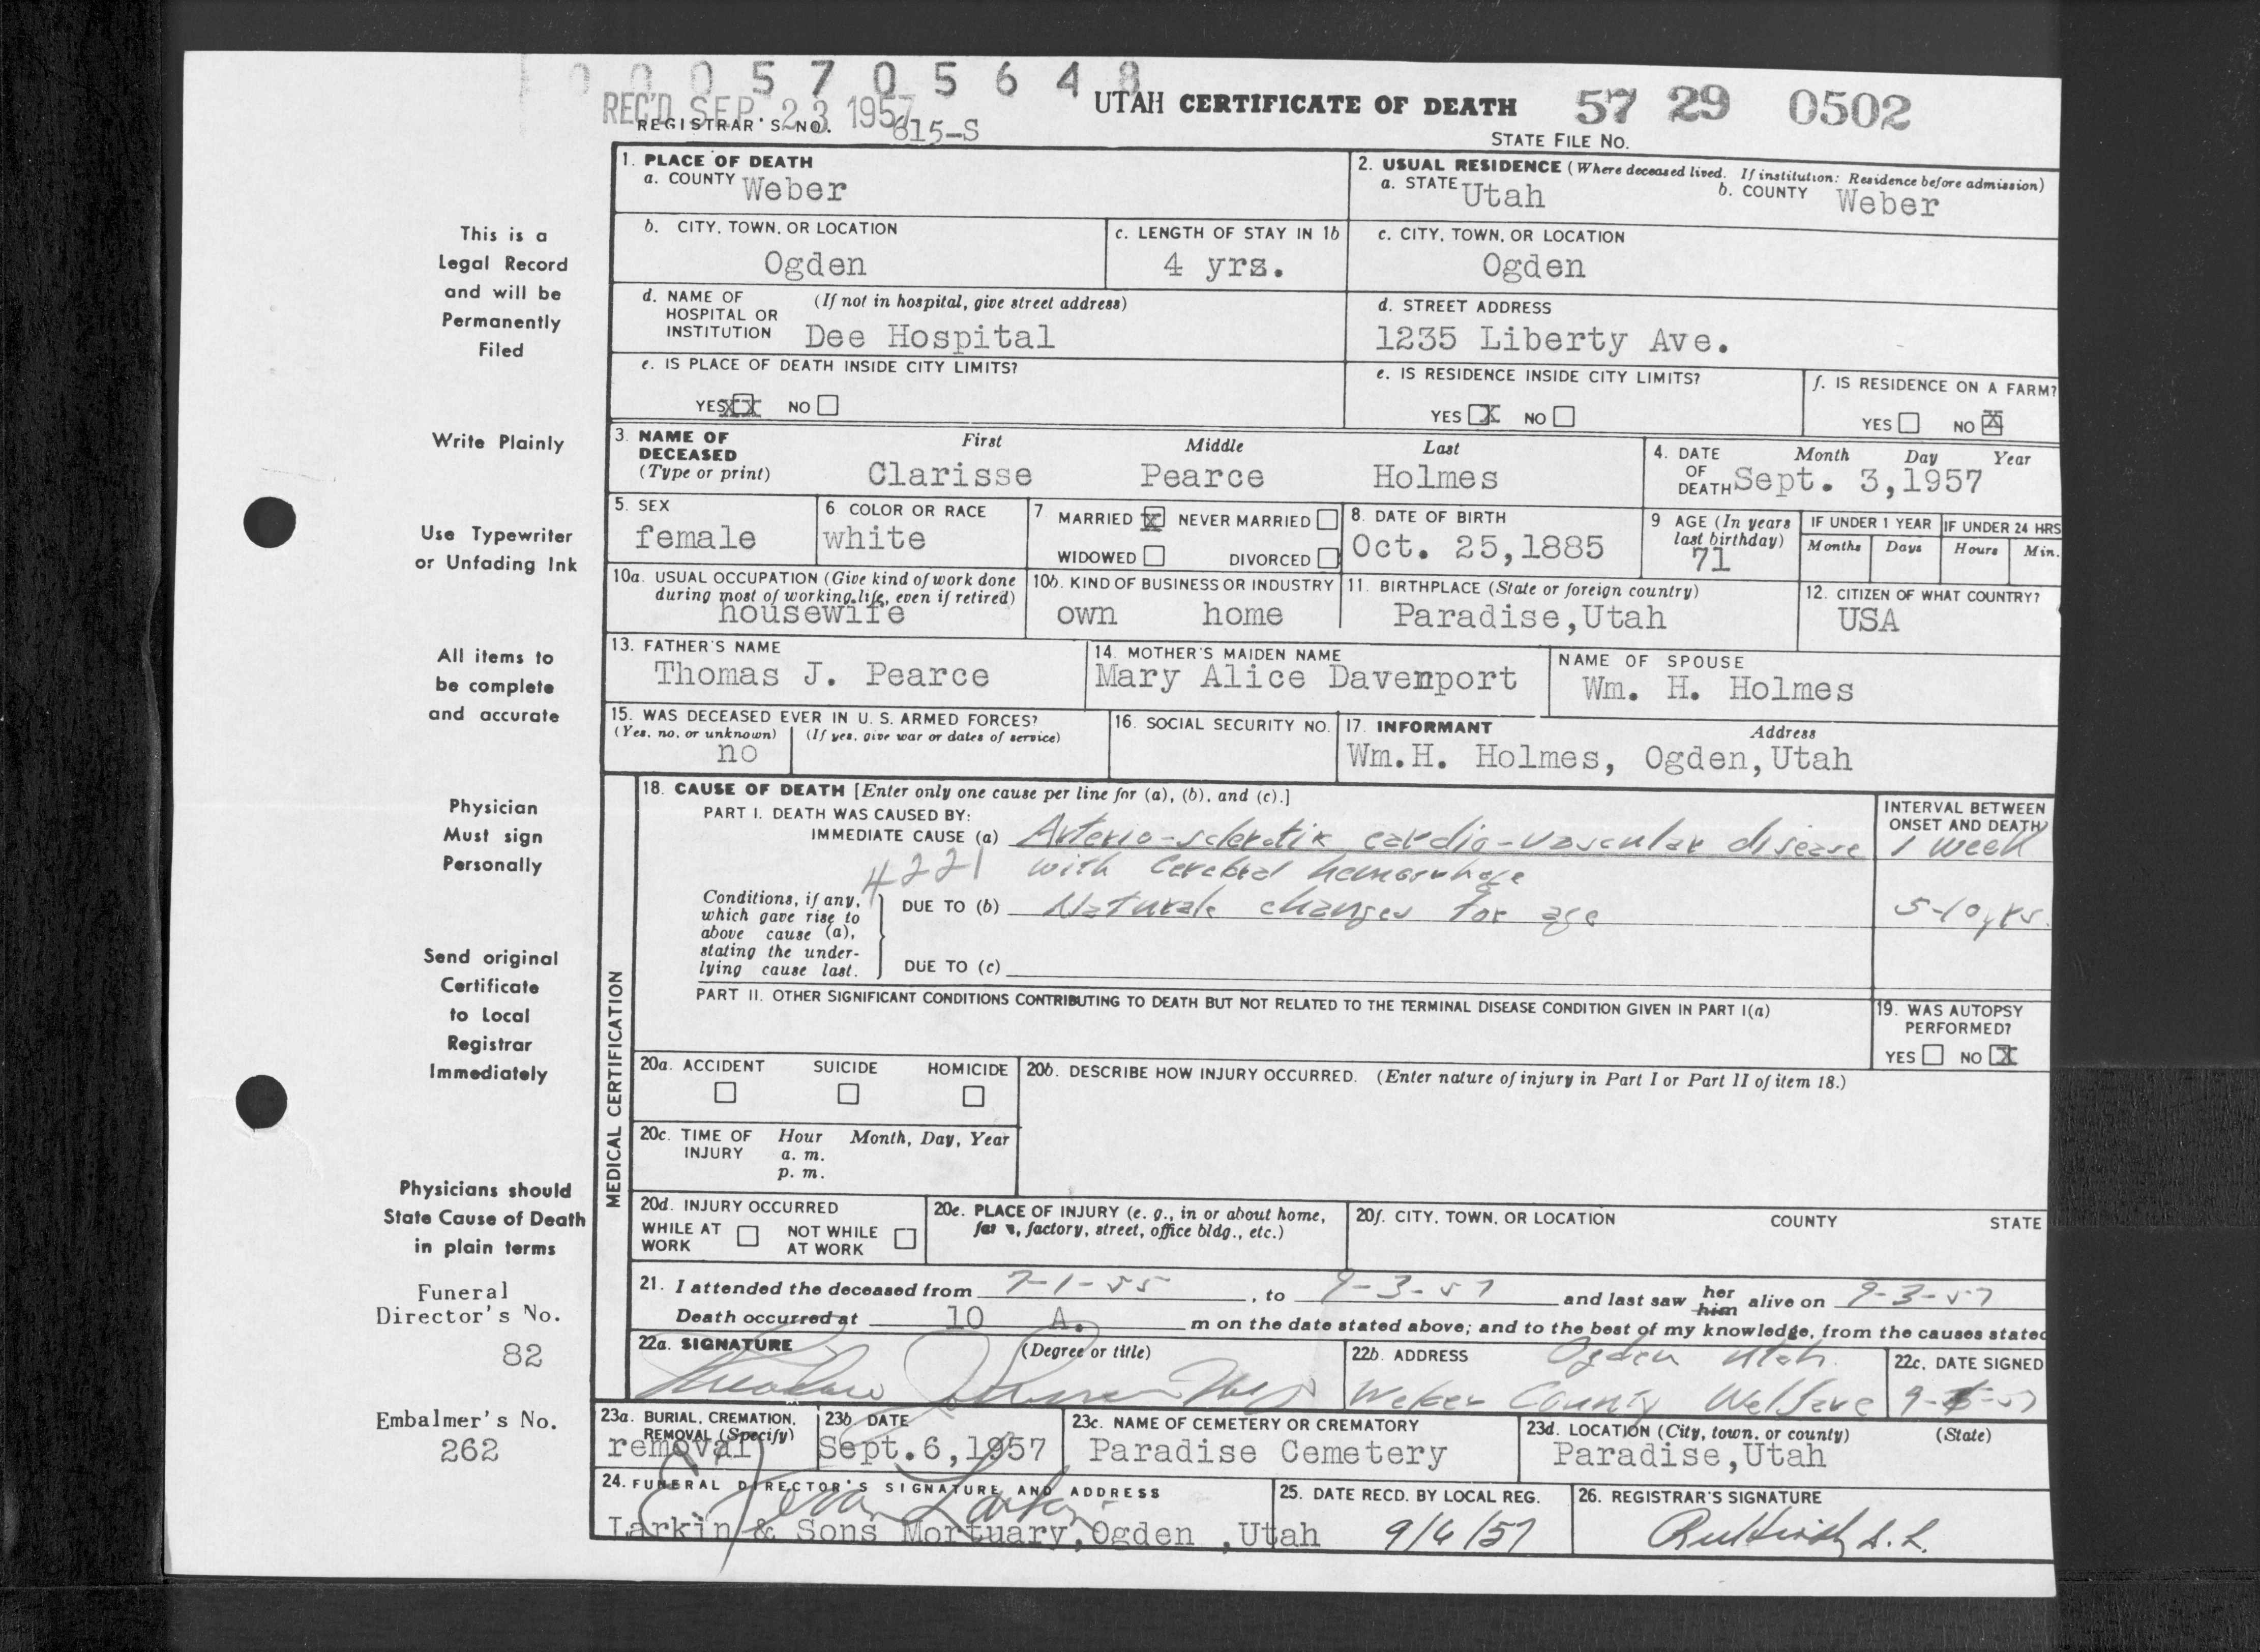 0 0 0 5 7 0 5 6 4 8
REC'D SEP 23 1957
UTAH CERTIFICATE OF DEATH 57 29 0502
REGISTRAR'S NO. 615-S
STATE FILE NO.
1. PLACE OF DEATH
a. COUNTY Weber
2. USUAL RESIDENCE (Where deceased lived. If institution: Residence before admission)
a. STATE Utah b. COUNTY Weber
b. CITY, TOWN, OR LOCATION
Ogden
c. LENGTH OF STAY IN 1b
4 yrs.
c. CITY, TOWN, OR LOCATION
Ogden
d. NAME OF HOSPITAL OR INSTITUTION (If not in hospital, give street address)
Dee Hospital
d. STREET ADDRESS
1235 Liberty Ave.
e. IS PLACE OF DEATH INSIDE CITY LIMITS?
YES XX NO
e. IS RESIDENCE INSIDE CITY LIMITS?
YES X NO
f. IS RESIDENCE ON A FARM?
YES NO X
3. NAME OF DECEASED (Type or print)
First Middle Last
Clarisse Pearce Holmes
4. DATE OF DEATH Month Day Year
Sept. 3,1957
5. SEX
female
6 COLOR OR RACE
white
7 MARRIED X NEVER MARRIED
WIDOWED DIVORCED
8. DATE OF BIRTH
Oct. 25,1885
9 AGE (In years last birthday)
71
IF UNDER 1 YEAR
Months Days
IF UNDER 24 HRS
Hours Min.
10a. USUAL OCCUPATION (Give kind of work done during most of working life, even if retired)
housewife
10b. KIND OF BUSINESS OR INDUSTRY
own home
11. BIRTHPLACE (State or foreign country)
Paradise,Utah
12. CITIZEN OF WHAT COUNTRY?
USA
13. FATHER'S NAME
Thomas J. Pearce
14. MOTHER'S MAIDEN NAME
Mary Alice Davenport
NAME OF SPOUSE
Wm. H. Holmes
15. WAS DECEASED EVER IN U. S. ARMED FORCES?
(Yes, no, or unknown) (If yes, give war or dates of service)
no
16. SOCIAL SECURITY NO.
17. INFORMANT Address
Wm.H. Holmes, Ogden,Utah
MEDICAL CERTIFICATION
18. CAUSE OF DEATH [Enter only one cause per line for (a), (b), and (c).]
PART I. DEATH WAS CAUSED BY:
IMMEDIATE CAUSE (a) Arterio-sclerotic cardio-vascular disease
4221 with cerebral hemorrhage
INTERVAL BETWEEN ONSET AND DEATH
1 week
Conditions, if any, which gave rise to above cause (a), stating the underlying cause last.
DUE TO (b) Natural changes for age
5-10 yrs.
DUE TO (c)
PART II. OTHER SIGNIFICANT CONDITIONS CONTRIBUTING TO DEATH BUT NOT RELATED TO THE TERMINAL DISEASE CONDITION GIVEN IN PART I(a)
19. WAS AUTOPSY PERFORMED?
YES NO X
20a. ACCIDENT SUICIDE HOMICIDE
20b. DESCRIBE HOW INJURY OCCURRED. (Enter nature of injury in Part I or Part II of item 18.)
20c. TIME OF INJURY Hour Month, Day, Year
a. m.
p. m.
20d. INJURY OCCURRED
WHILE AT WORK NOT WHILE AT WORK
20e. PLACE OF INJURY (e. g., in or about home, farm, factory, street, office bldg., etc.)
20f. CITY, TOWN, OR LOCATION COUNTY STATE
21. I attended the deceased from 7-1-55, to 9-3-57 and last saw her him alive on 9-3-57
Death occurred at 10 A. m on the date stated above; and to the best of my knowledge, from the causes stated
22a. SIGNATURE (Degree or title)
22b. ADDRESS Ogden Utah.
Weber County Welfare
22c. DATE SIGNED
23a. BURIAL, CREMATION, REMOVAL (Specify)
removal
23b DATE
Sept.6,1957
23c. NAME OF CEMETERY OR CREMATORY
Paradise Cemetery
23d. LOCATION (City, town, or county) (State)
Paradise,Utah
24. FUNERAL DIRECTOR'S SIGNATURE AND ADDRESS
Larkin
Larkin & Sons Mortuary,Ogden ,Utah
25. DATE RECD. BY LOCAL REG.
9/6/57
26. REGISTRAR'S SIGNATURE
This is a
Legal Record
and will be
Permanently
Filed
Write Plainly
Use Typewriter
or Unfading Ink
All items to
be complete
and accurate
Physician
Must sign
Personally
Send original
Certificate
to Local
Registrar
Immediately
Physicians should
State Cause of Death
in plain terms
Funeral
Director's No.
82
Embalmer's No.
262